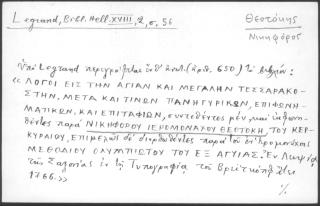 Legrand, Bibl. Hell. XVIII, 2, σ. 56
Θεοτόκης
Νικηφόρος
Ὑπὸ Legrand περιγράφεται ὑπ' ἀριθ. (ἀριθ. 650) τὸ βιβλίον:
«ΛΟΓΟΙ ΕΙΣ ΤΗΝ ΑΓΙΑΝ ΚΑΙ ΜΕΓΑΛΗΝ ΤΕΣΣΑΡΑΚΟ-
ΣΤΗΝ, ΜΕΤΑ ΚΑΙ ΤΙΝΩΝ ΠΑΝΗΓΥΡΙΚΩΝ, ΕΠΙΦΩΝΗ-
ΜΑΤΙΚΩΝ, ΚΑΙ ΕΠΙΤΑΦΙΩΝ, συντεθέντες μὲν, καὶ ἐκφωνη-
θέντες παρὰ ΝΙΚΗΦΟΡΟΥ ΙΕΡΟΜΟΝΑΧΟΥ ΘΕΟΤΟΚΗ, ΤΟΥ ΚΕΡ-
ΚΥΡΑΙΟΥ, ἐπιμελῶς δὲ διορθωθέντες παρὰ τοῦ ἐν ἱερομονάχοις
ΜΕΘΟΔΙΟΥ ΟΛΥΜΠΙΩΤΟΥ ΤΟΥ ΕΞ ΑΓΥΙΑΣ. Ἐν
τῆς Σαξονίας ἐν τῇ Τυπογραφίᾳ τοῦ Βρεϊτκόπφ Ἔτει
1766.»